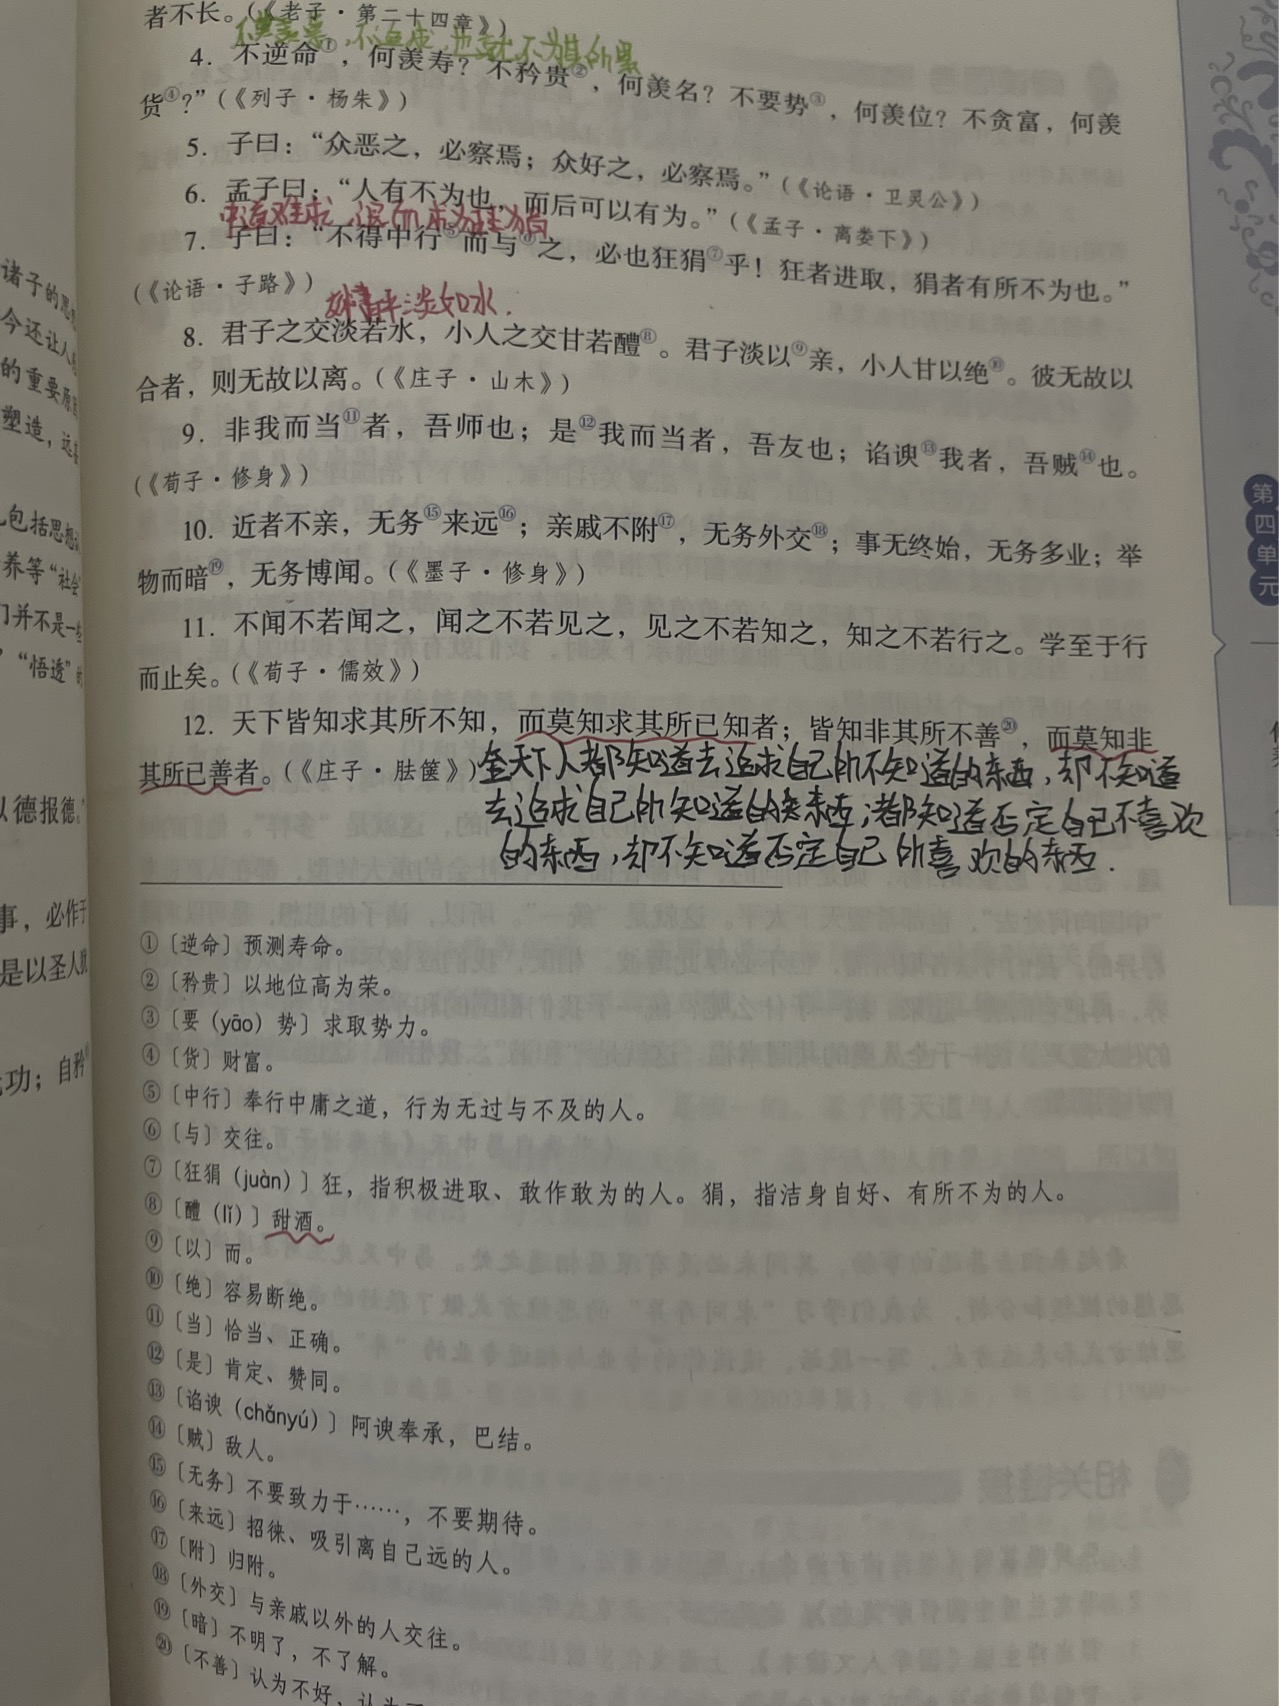 者不长。（《老子·第二十四章》）
4. 不逆命①，何羡寿？不矜贵②，何羡名？不要势③，何羡位？不贪富，何羡
货④？”（《列子·杨朱》）
5. 子曰：“众恶之，必察焉；众好之，必察焉。”（《论语·卫灵公》）
6. 孟子曰：“人有不为也，而后可以有为。”（《孟子·离娄下》）
中道难求，退而求为
7. 子曰：“不得中行⑤而与⑥之，必也狂狷⑦乎！狂者进取，狷者有所不为也。”
（《论语·子路》）
平淡如水．
8. 君子之交淡若水，小人之交甘若醴⑧。君子淡以⑨亲，小人甘以绝⑩。彼无故以
合者，则无故以离。（《庄子·山木》）
9. 非我而当⑪者，吾师也；是⑫我而当者，吾友也；谄谀⑬我者，吾贼⑭也。
（《荀子·修身》）
10. 近者不亲，无务⑮来远⑯；亲戚不附⑰，无务外交⑱；事无终始，无务多业；举
物而暗⑲，无务博闻。（《墨子·修身》）
11. 不闻不若闻之，闻之不若见之，见之不若知之，知之不若行之。学至于行
而止矣。（《荀子·儒效》）
12. 天下皆知求其所不知，而莫知求其所已知者；皆知非其所不善⑳，而莫知非
其所已善者。（《庄子·胠箧》）
全天下人都知道去追求自己所不知道的东西，却不知道
去追求自己所知道的东西；都知道否定自己不喜欢
的东西，却不知道否定自己所喜欢的东西．
①〔逆命〕预测寿命。
②〔矜贵〕以地位高为荣。
③〔要（yāo）势〕求取势力。
④〔货〕财富。
⑤〔中行〕奉行中庸之道，行为无过与不及的人。
⑥〔与〕交往。
⑦〔狂狷（juàn）〕狂，指积极进取、敢作敢为的人。狷，指洁身自好、有所不为的人。
⑧〔醴（lǐ）〕甜酒。
⑨〔以〕而。
⑩〔绝〕容易断绝。
⑪〔当〕恰当、正确。
⑫〔是〕肯定、赞同。
⑬〔谄谀（chǎnyú）〕阿谀奉承，巴结。
⑭〔贼〕敌人。
⑮〔无务〕不要致力于……，不要期待。
⑯〔来远〕招徕、吸引离自己远的人。
⑰〔附〕归附。
⑱〔外交〕与亲戚以外的人交往。
⑲〔暗〕不明了，不了解。
⑳〔不善〕认为不好，认为
诸子的思
今还让人
的重要原
塑造，
包括思想
养等“社会
门并不是一
“悟透”的
以德报德。
事，必作于
是以圣人犹
功；自矜
第四单元
相关链接